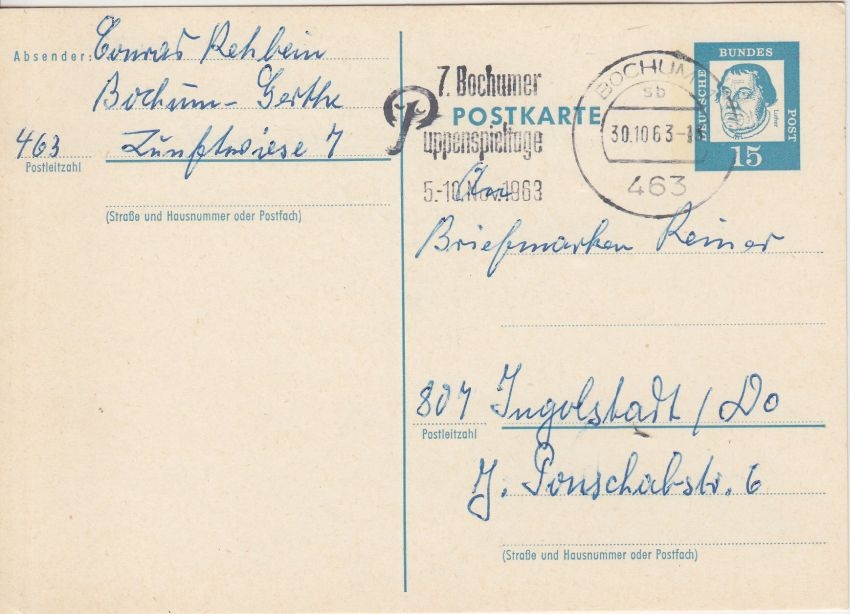 Absender: Conrad Rehbein
Bochum-Gerthe
463 Zunftwiese 7
Postleitzahl
(Straße und Hausnummer oder Postfach)
7. Bochumer
POSTKARTE
uppenspieltage
5.-10. Nov. 1963
BOCHUM
sb
30.10.63
463
DEUTSCHE
BUNDES
POST
Luther
15
An
Briefmarken Reiner
807 Ingolstadt / Do
Postleitzahl
J. Ponschabstr. 6
(Straße und Hausnummer oder Postfach)